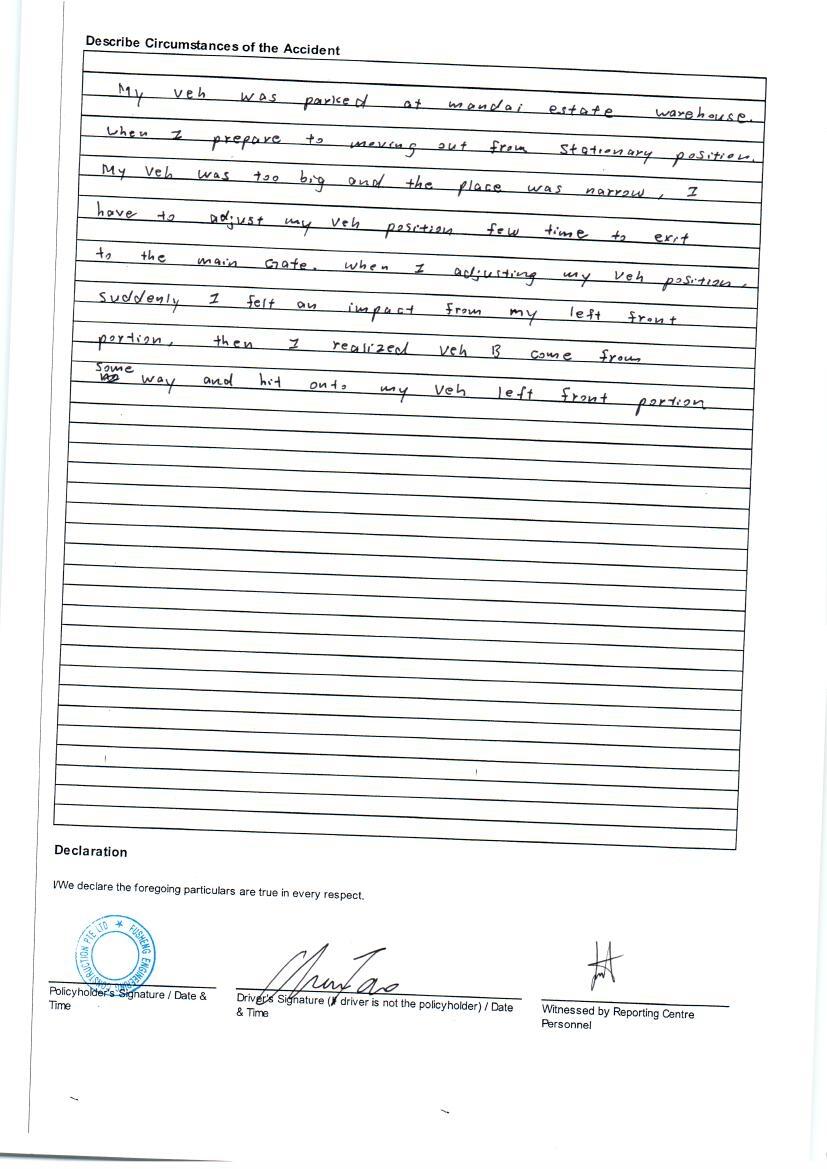 Describe Circumstances of the Accident
My veh was parked at mandai estate warehouse.
when I prepare to moving out from stationary position.
My veh was too big and the place was narrow, I
have to adjust my veh position few time to exit
to the main Gate. when I adjusting my veh position,
suddenly I felt an impact from my left front
portion, then I realized veh B come from
some way and hit onto my veh left front portion
Declaration
I/We declare the foregoing particulars are true in every respect.
FUSHENG ENGINEERING CONSTRUCTION PTE LTD
Policyholder's Signature / Date &
Time
Driver's Signature (if driver is not the policyholder) / Date
& Time
Witnessed by Reporting Centre
Personnel